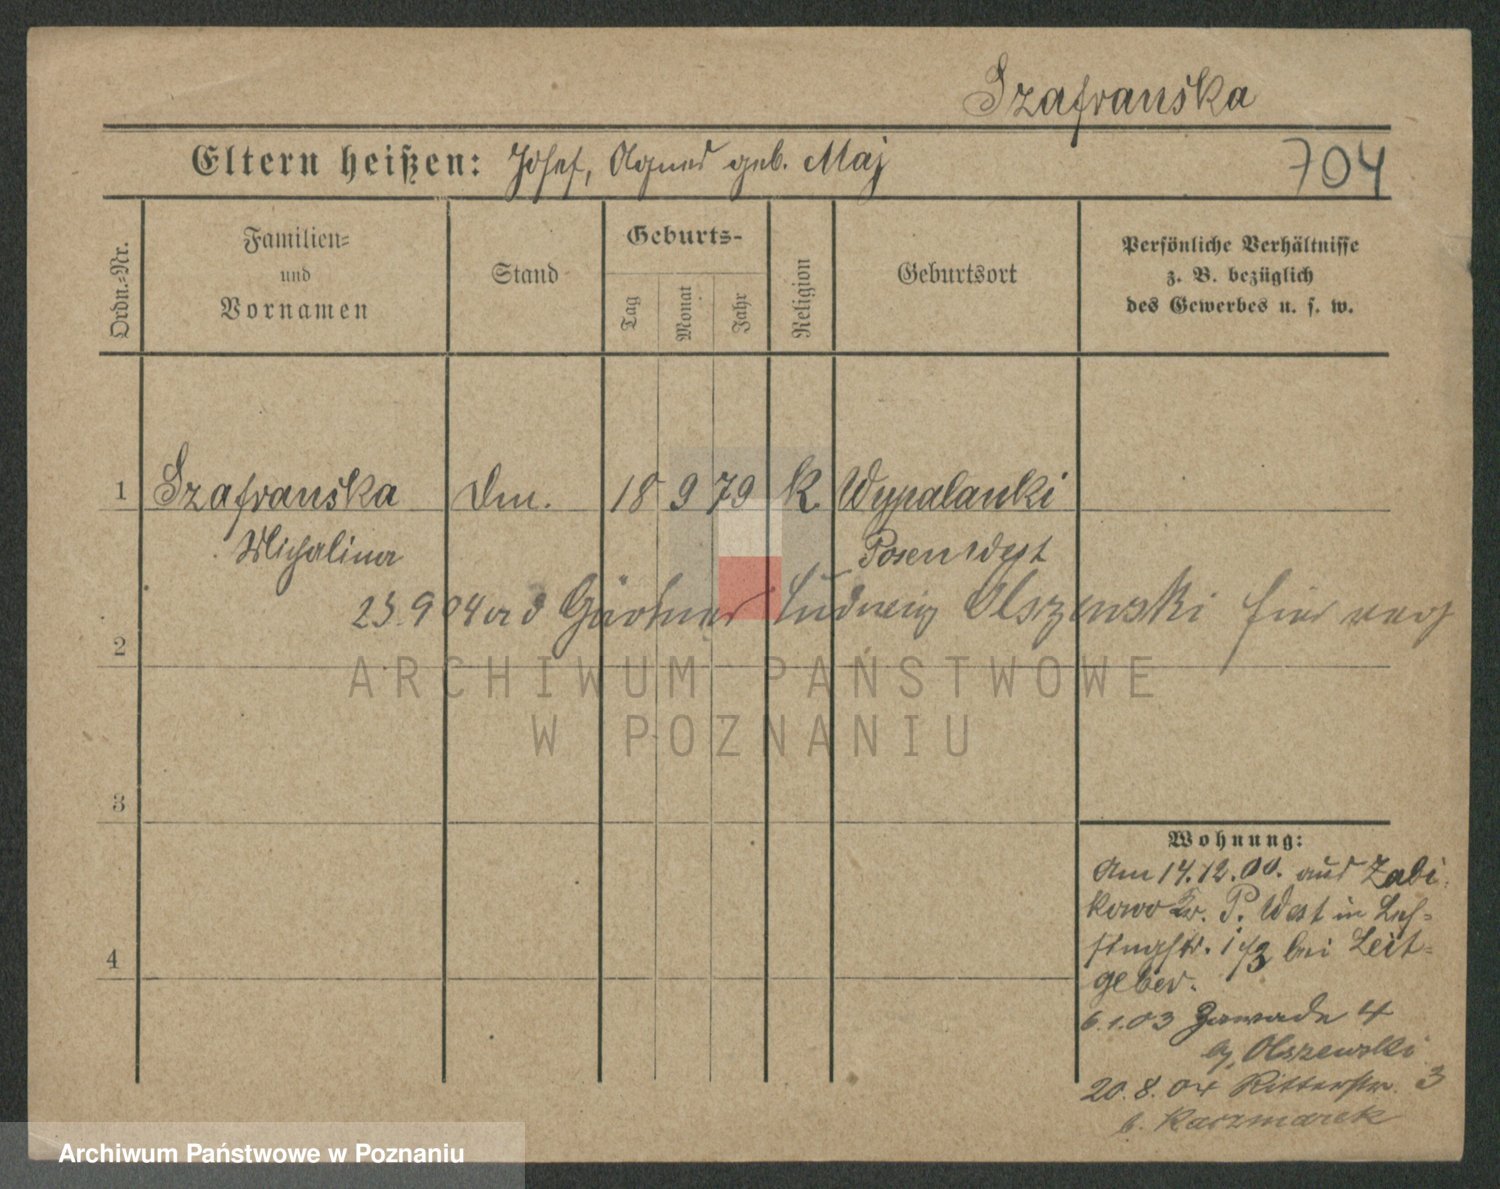 Szafranska
Eltern heißen: Josef, Agnes geb. Maj
704
Ordn.-Nr.
Familien-
und
Vornamen
Stand
Geburts-
Tag
Monat
Jahr
Religion
Geburtsort
Persönliche Verhältnisse
z. B. bezüglich
des Gewerbes u. s. w.
1 Szafranska Dm. 18 9 79 K Wypalanki
Michalina Posen West
23.9 04 Gärtner Ludwig Olszewski hier
2
ARCHIWUM PAŃSTWOWE
W POZNANIU
3
4
Wohnung:
Am 14.12.00. aus Zabi-
kowo Kr. P. West in
bei Leit-
geber.
6.1.03 Zawade 4
b, Olszewski
20.8.04 Ritterstr. 3
b. Kaczmarek
Archiwum Państwowe w Poznaniu